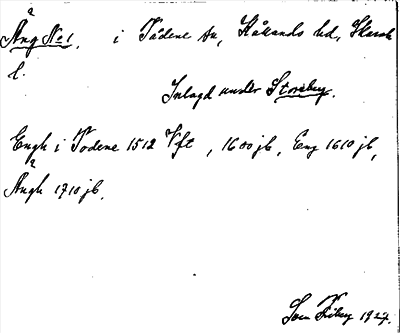 Äng No 1. i Tådene sn, Kållands hd, Skarab.
l.
Inlagd under Storeby.
Engh i Todene 1512 Vft, 1600 jb, Eng 1610 jb,
Ängh 1710 jb.
Sven Friberg 1927.